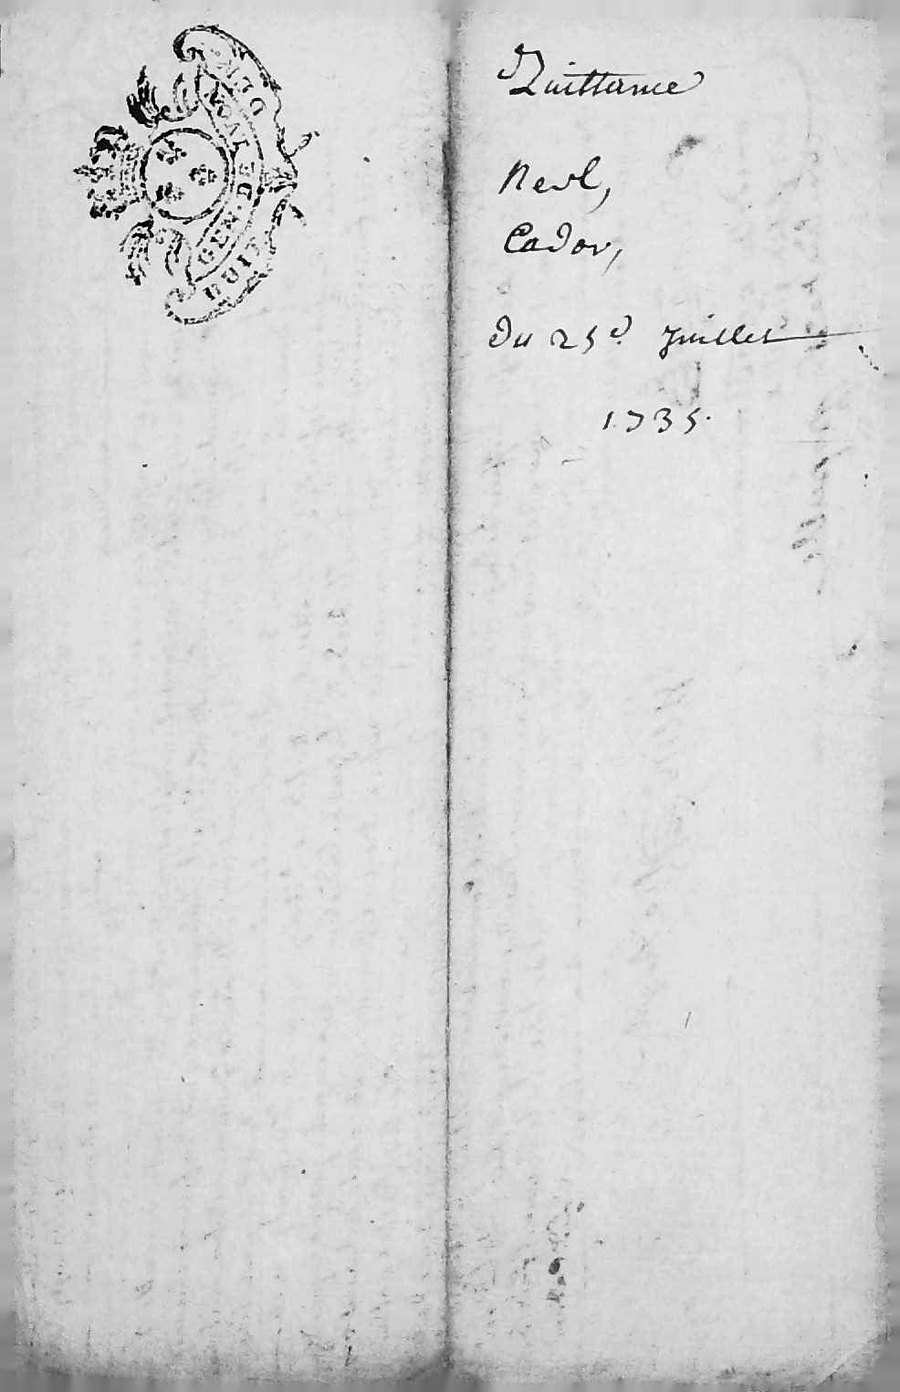 GEN. DE LYON
HUIT DEN.
Quittance
Nevl,
Cador,
du 25e. Juillet
1735.